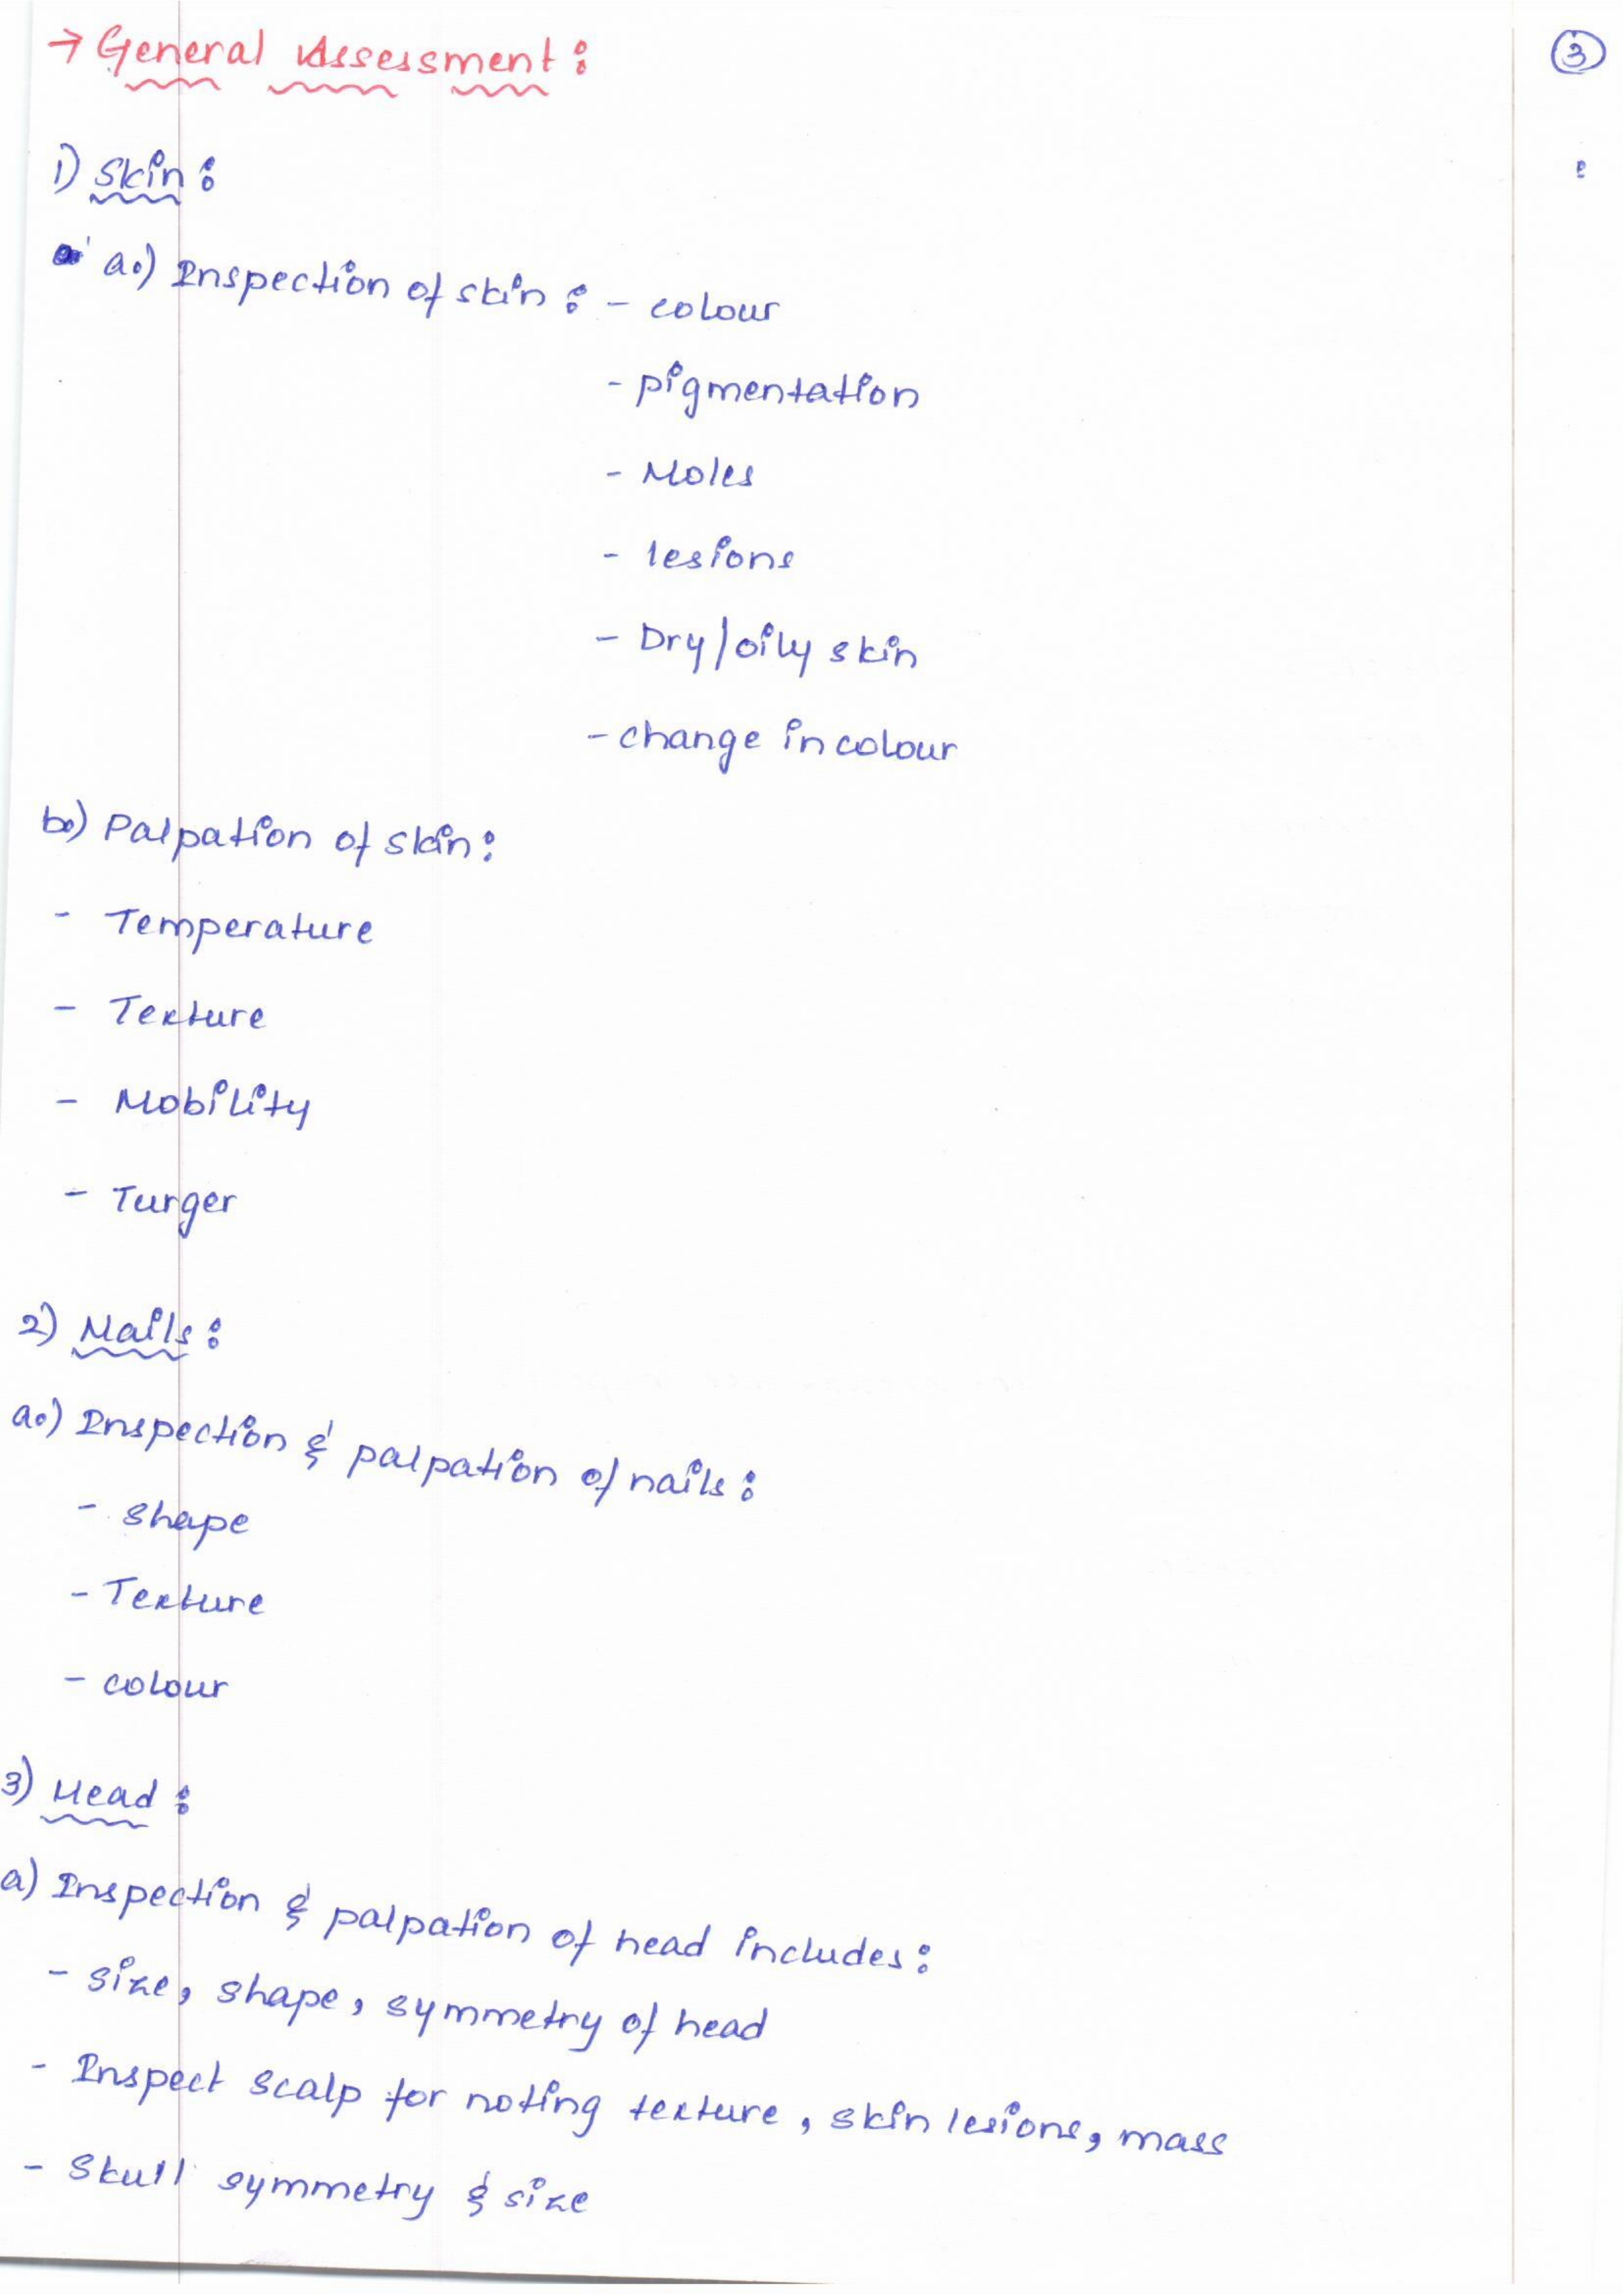 → General Assessment :
3
1) Skin :
a.) Inspection of skin : - colour
- pigmentation
- Moles
- lesions
- Dry/oily skin
- change in colour
b.) Palpation of skin :
- Temperature
- Texture
- Mobility
- Turger
2) Nails :
a.) Inspection & palpation of nails :
- shape
- Texture
- colour
3) Head :
a) Inspection & palpation of head includes :
- size, shape, symmetry of head
- Inspect scalp for noting texture, skin lesions, mass
- Skull symmetry & size